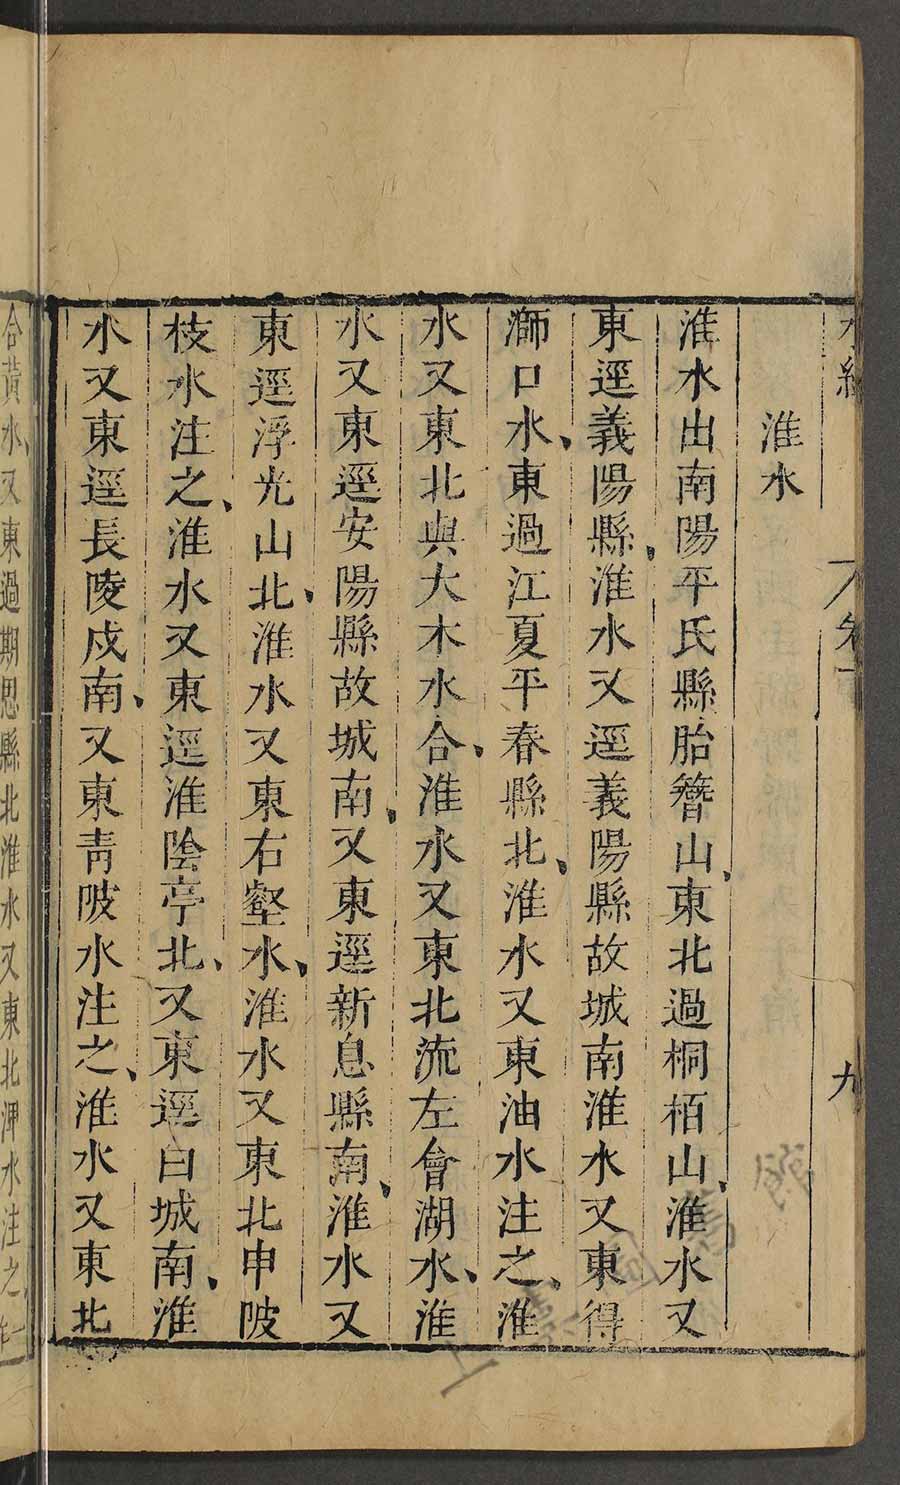 水經
卷下
九
淮水
淮水出南陽平氏縣胎簪山、東北過桐栢山、淮水又
東逕義陽縣、淮水又逕義陽縣故城南淮水又東得
溮口水、東過江夏平春縣北、淮水又東油水注之、淮
水又東北與大木水合、淮水又東北流左會湖水、淮
水又東逕安陽縣故城南、又東逕新息縣南、淮水又
東逕浮光山北、淮水又東右壑水、淮水又東北申陂
枝水注之、淮水又東逕淮陰亭北、又東逕白城南、淮
水又東逕長陵戍南、又東青陂水注之、淮水又東北
合黃水、又東過期思縣北淮水又東北淠水注之、